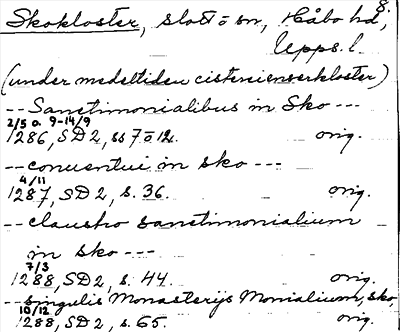 8.
Skokloster, slott o sn, Håbo hd,
Upps. l.
(under medeltiden cistercienserkloster)
-- Sanctimonialibus in Sko ---
2/5 o. 9-14/9
1286, SD 2, ss 7 o 12. orig.
-- conuentui in sko ---
4/11
1287, SD 2, s. 36. orig.
-- claustro sanctimonialium
in sko ---
7/3
1288, SD 2, s. 44. orig.
-- singulis Monasterijs Monialium, sko,
10/12
1288, SD 2, s. 65. orig.